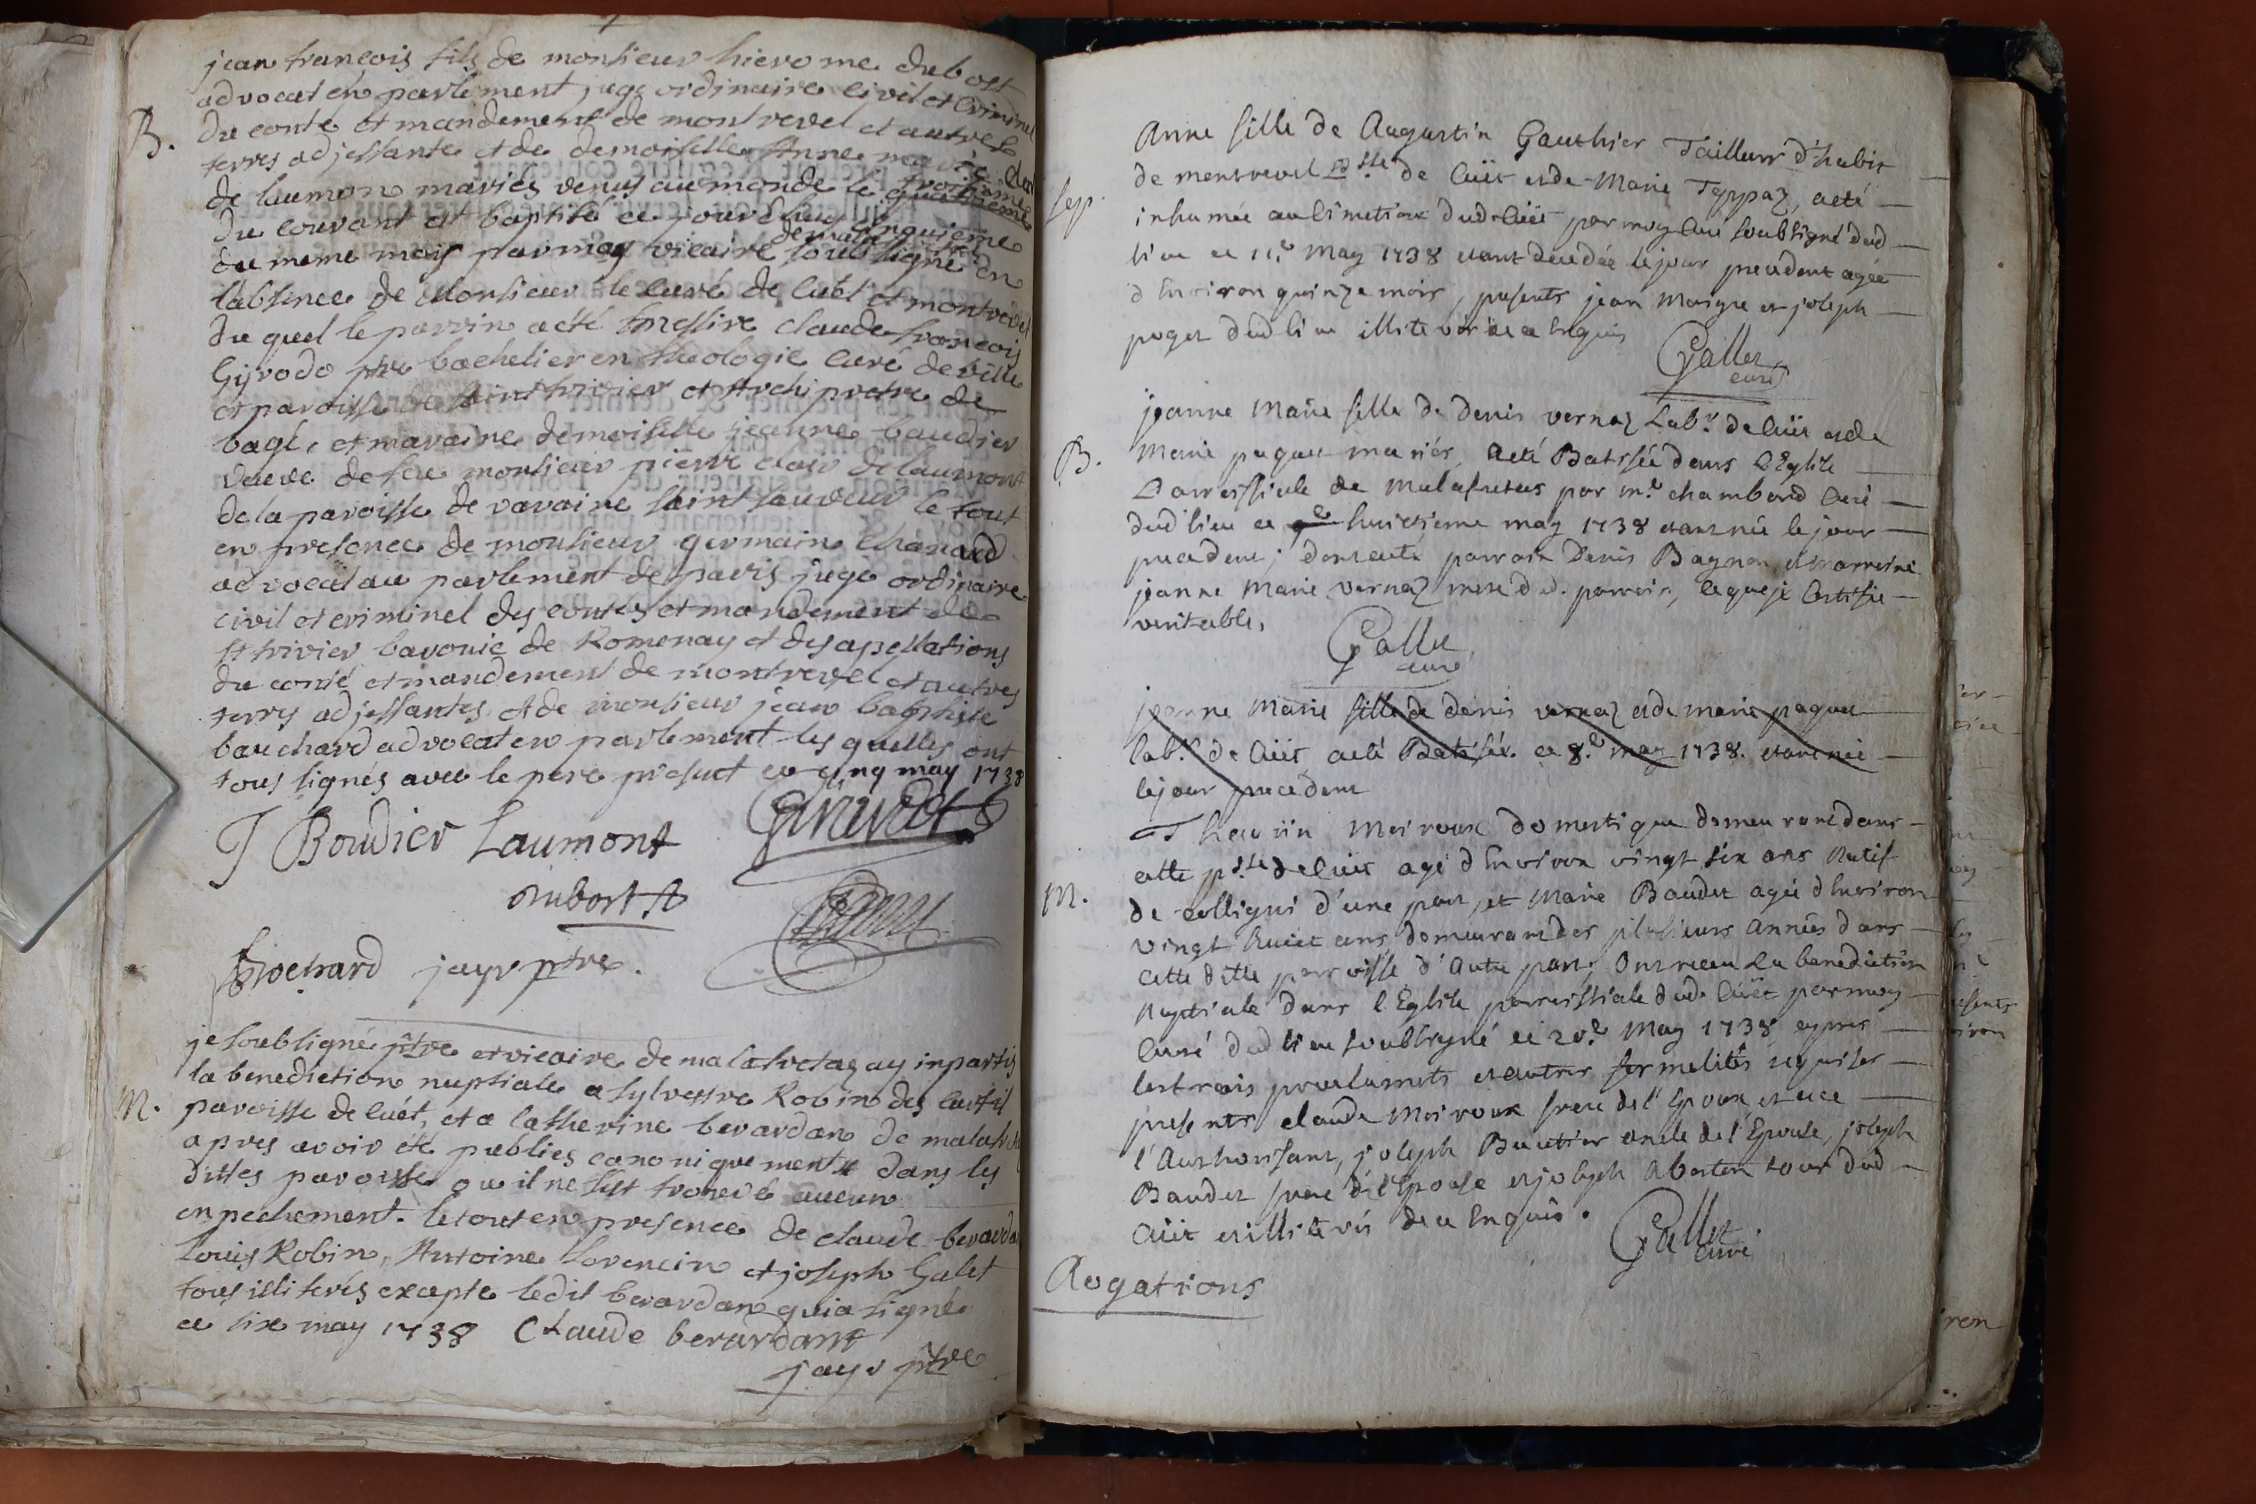 jean francois fils de monsieur hierome dubost
advocat en parlement juge ordinaire civil et criminel
B.
du conté et mandement de montrevel et autres
terres adjessante et de demoiselle Anne marie clar
de laumon mariés venus au monde le quatrieme troisieme
du courant et baptisé ce jourdhuy cinquieme
du meme mois par moy vicaire de malafretas soubsigné en
labsence de Monsieur le curé de cuét et montrevel
du quel le parrin a eté messire claude francois
Gyrodo ptre bachelier en theologie curé de ville
et paroisse de saint trivier et Archipretre de
bagé, et maraine demoiselle jeanne baudier
veuve de feu monsieur pierre clar de laumont
de la paroisse de varaine saint sauveur le tout
en presence de monsieur germain chanard
advocat au parlement de paris juge ordinaire
civil et criminel des contes et mandement de
st trivier baronie de Romenay et des apellations
du conté et mandement de montrevel et autres
terres adjessantes et de monsieur jean baptiste
bauchard advocat en parlement les quelles ont
tous signés avec le pere present ce cinq may 1738
J Boudier Laumont
Dubost
jayr ptre.
je soubsigné ptre et vicaire de malafretas ay inparti
la benediction nuptiale a sylvestre Robin des curtil
M.
paroisse de cuét, et a catherine berardan de malafret
apres avoir été publies canoniquement dans les
dittes paroisse ou il ne sest trouvé aucun
enpechement. le tout en presence de claude berarda
louis Robin, Antoine lorencin et joseph Galet
tous illiterés excepte ledit berardan qui a signé
ce six may 1738 Claude berardam
jayr ptre
Anne fille de Augustin Gauthier Tailleur d'habit
de montrevel psse de Cüet et de Marie Teppaz, a eté
sep.
inhumée au cimetiere dud Cüet par moy Curé soubsigné dud
lieu ce 11.e May 1738 etant decedée le jour precedent agée
d'Environ quinze mois, presents jean Maigre et joseph
poget dud lieu illiterés de ce Enquis
Gallet
curé
jeanne Marie fille de denis vernaz Lab.r de Cüet et de
B.
Marie paquet mariés, a eté Batisée dans L'Eglise
Parroissiale de Malafretas par m.e chambard Curé
dud lieu ce huictieme may 1738 etant née le jour
precedent; dont a eté parrain Denis Bagnon et marreine
jeanne Marie vernaz mere dud. parrein, ce que je Certifie
veritable,
Gallet
curé
jeanne Marie fille de denis vernaz et de marie paquet
lab.r de Cüet a eté Batisée. ce 8.e may 1738. etant née
le jour precedent
Thaurin Moiroux domestique demeurant dans
cette psse de Cüet agé d'Environ vingt six ans Natif
M.
de colligni d'une part, et Marie Baudet agée d'Environ
vingt huict ans demeurant des plusieurs années dans
cette ditte parroisse d'Autre part, Ont receu La benediction
Nuptiale dans l'Eglise parroissiale dud. Cüet par moy
Curé dud lieu soubsigné ce 20.e May 1738 apres
les trois proclamats et autres formelités requises
presents claude Moiroux frere de l'Epoux et ice
l'Authorisant, joseph Buetier oncle de l'Epouse, joseph
Baudet frere de l'Epouse et joseph Aberten tous dud
Cüet et illiterés de ce Enquis.
Gallet
curé
Rogations